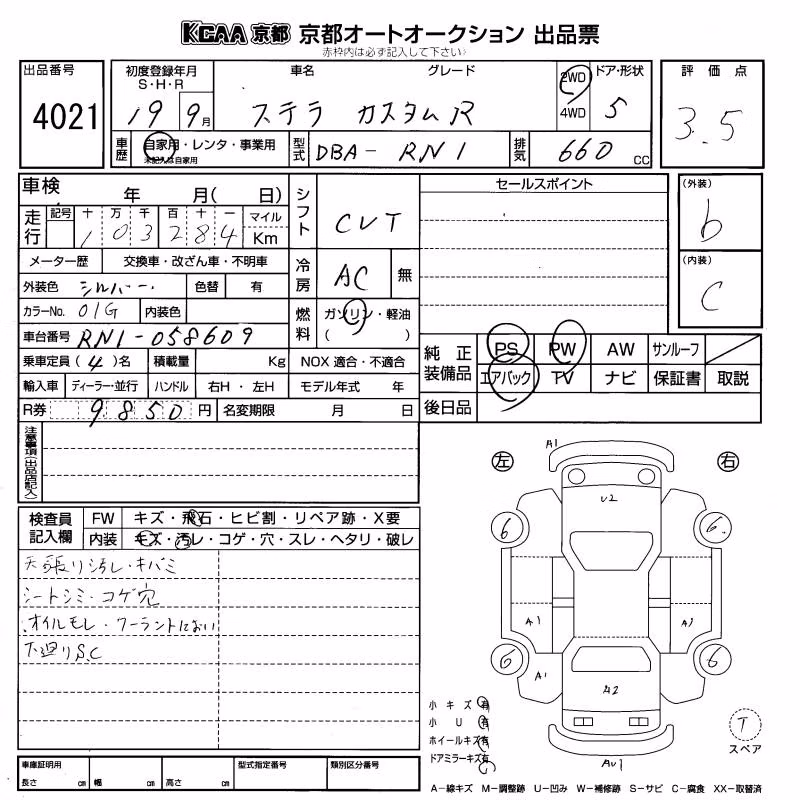 KCAA 京都 京都オートオークション 出品票
赤枠内は必ず記入して下さい〉
出品番号 4021
初度登録年月 S・H・R 19 9月
車名 グレード ステラ カスタムR
2WD 4WD
ドア・形状 5
評価点 3.5
車歴 自家用・レンタ・事業用
未記入は自家用
型式 DBA- RN1
排気 660 CC
車検 年 月( 日)
走行 記号 十 万 千 百 十 一 マイル
1 0 3 2 8 4 Km
メーター歴 交換車・改ざん車・不明車
外装色 シルバー 色替 有
カラーNo. 01G 内装色
車台番号 RN1-058609
乗車定員(4)名 積載量 Kg
輸入車 ディーラー・並行 ハンドル 右H・左H
R券 9850円 名変期限 月 日
シフト CVT
冷房 AC 無
燃料 ガソリン・軽油
( )
NOX適合・不適合
モデル年式 年
セールスポイント
(外装) b
(内装) C
純正装備品 PS PW AW サンルーフ
エアバック TV ナビ 保証書 取説
後日品
注意事項(出品店記入)
検査員記入欄 FW キズ・飛石・ヒビ割・リペア跡・X要
内装 キズ・汚レ・コゲ・穴・スレ・ヘタリ・破レ
天張り汚レ・キバミ
シートシミ・コゲ穴
オイルモレ・クーラントにおい
下廻りS.C
左 右
A1
U2
6 6
A1 A1
6 6
A1
A2
AU1
小キズ有
小U有
ホイールキズ有
ドアミラーキズ有
T
スペア
車庫証明用 型式指定番号 類別区分番号
長さ cm 幅 cm 高さ cm
A-線キズ M-調整跡 U-凹み W-補修跡 S-サビ C-腐食 XX-取替済